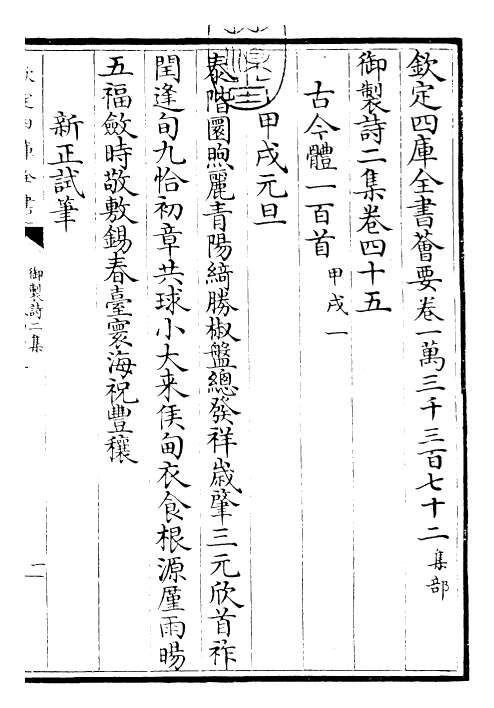 欽定四庫全書薈要卷一萬三千三百七十二 集部
御製詩二集卷四十五
古今體一百首 甲戌一
甲戌元旦
泰階圜煦麗青陽綺勝椒盤總發祥歲肇三元欣首祚
閏逢旬九恰初章共球小大来侯甸衣食根源廑雨暘
五福斂時敬敷錫春臺寰海祝豐穰
新正試筆
欽定四庫全書
御製詩二集